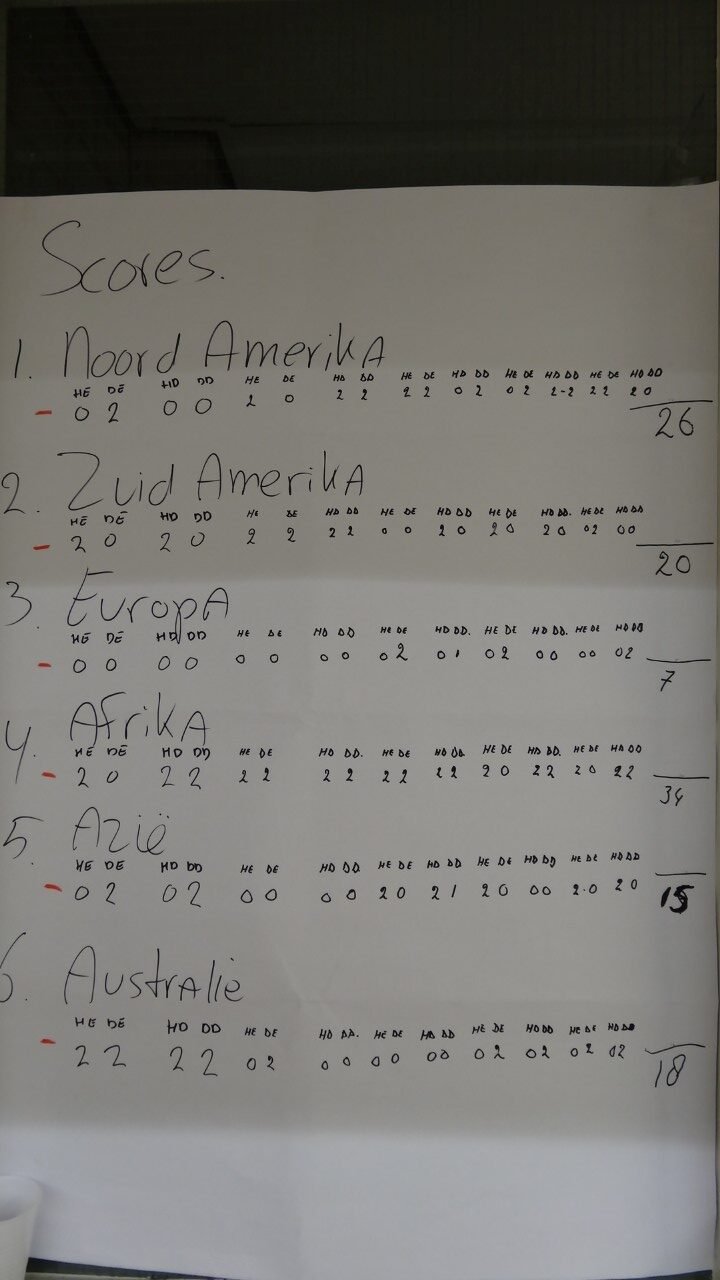 Scores.
1. Noord Amerika
HE DE HD DD HE DE HD DD HE DE HD DD HE DE HD DD HE DE HD DD
- 0 2 0 0 2 0 2 2 2 2 0 2 0 2 2-2 2 2 2 0
26
2. Zuid Amerika
HE DE HD DD HE DE HD DD HE DE HD DD HE DE HD DD. HE DE HD DD
- 2 0 2 0 2 2 2 2 0 0 2 0 2 0 2 0 0 2 0 0
20
3. Europa
HE DE HD DD HE DE HD DD HE DE HD DD. HE DE HD DD. HE DE HD DD
- 0 0 0 0 0 0 0 0 0 2 0 1 0 2 0 0 0 0 0 2
7
4. Afrika
HE DE HD DD HE DE HD DD. HE DE HD DD. HE DE HD DD. HE DE HD DD
- 2 0 2 2 2 2 2 2 2 2 2 2 2 0 2 2 2 0 2 2
34
5. Azië
HE DE HD DD HE DE HD DD HE DE HD DD HE DE HD DD HE DE HD DD
- 0 2 0 2 0 0 0 0 2 0 2 1 2 0 0 0 2.0 2 0
15
6. Australië
HE DE HD DD HE DE HD DD. HE DE HD DD HE DE HD DD HE DE HD DD
- 2 2 2 2 0 2 0 0 0 0 0 0 0 2 0 2 0 2 0 2
18